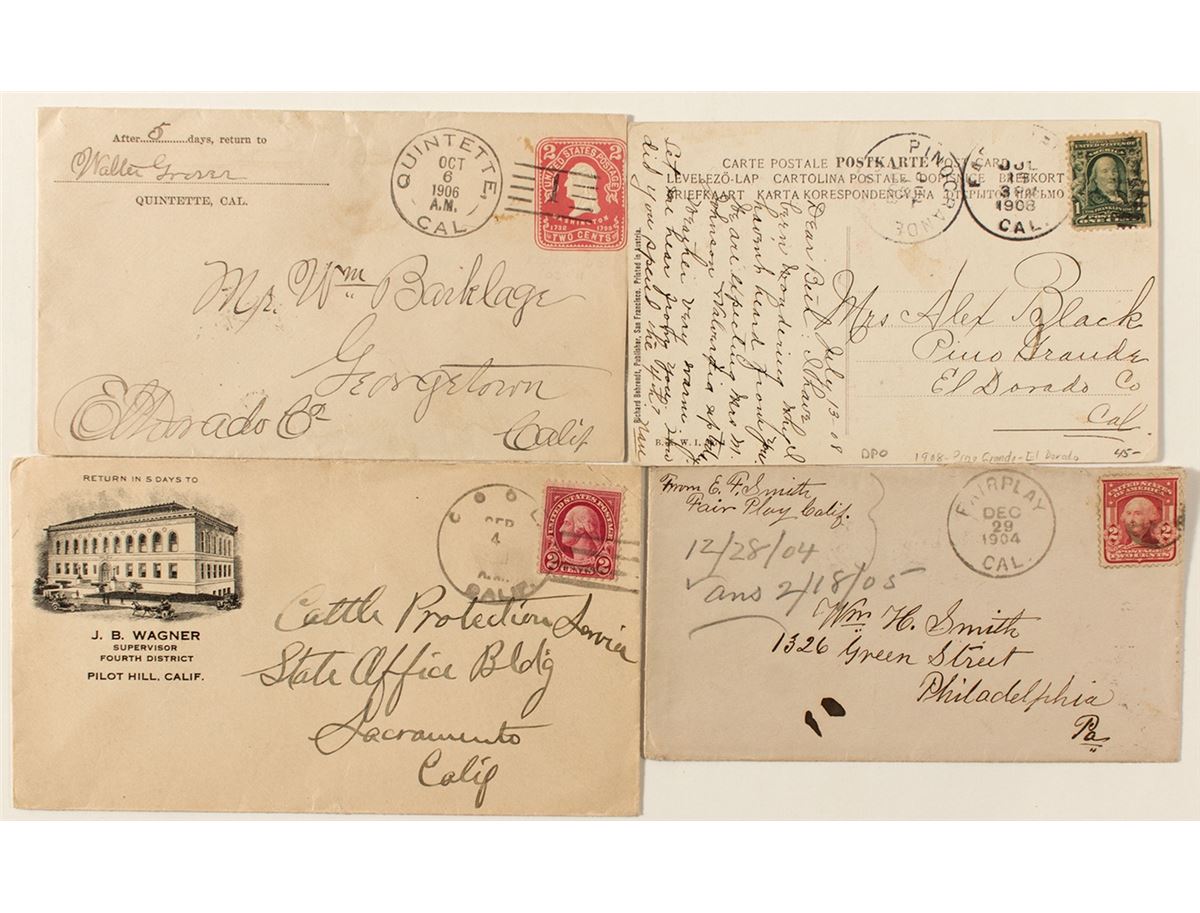 After 5 days, return to
Walter Grover
QUINTETTE, CAL.
QUINTETTE,
OCT
6
1906
A.M.
CAL.
2 UNITED STATES POSTAGE 2
WASHINGTON
1732 1799
TWO CENTS
Mr. Wm Barklage
Georgetown
El Dorado Co
Calif.
CARTE POSTALE POSTKARTE POST CARD
LEVELEZŐ-LAP CARTOLINA POSTALE DOPISNICE BREFKORT
BRIEFKAART KARTA KORESPONDENCYJNA ОТКРЫТОЕ ПИСЬМО
PINO GRANDE
JUL
1908
CAL.
Richard Behrendt, Publisher, San Francisco. Printed in Austria.
July 13-08
Dear Bird: I have
been wondering why I
havent heard from you
Weather very warm now
Let me hear from you. How
did you spend the 4th?
Mrs Alex Black
Pino Grande
El Dorado Co
Cal.
DPO
1908-Pino Grande-El Dorado
45-
RETURN IN 5 DAYS TO
J. B. WAGNER
SUPERVISOR
FOURTH DISTRICT
PILOT HILL, CALIF.
COOL
SEP
4
A.M.
CALIF.
UNITED STATES POSTAGE
2 CENTS 2
Cattle Protection Service
State Office Bldg
Sacramento
Calif
From E. F. Smith
Fair Play Calif.
12/28/04
ans 2/18/05
FAIRPLAY
DEC
29
1904
CAL.
UNITED STATES
OF AMERICA
2 2
POSTAGE
TWO CENTS
Wm H. Smith
1326 Green Street
Philadelphia
Pa